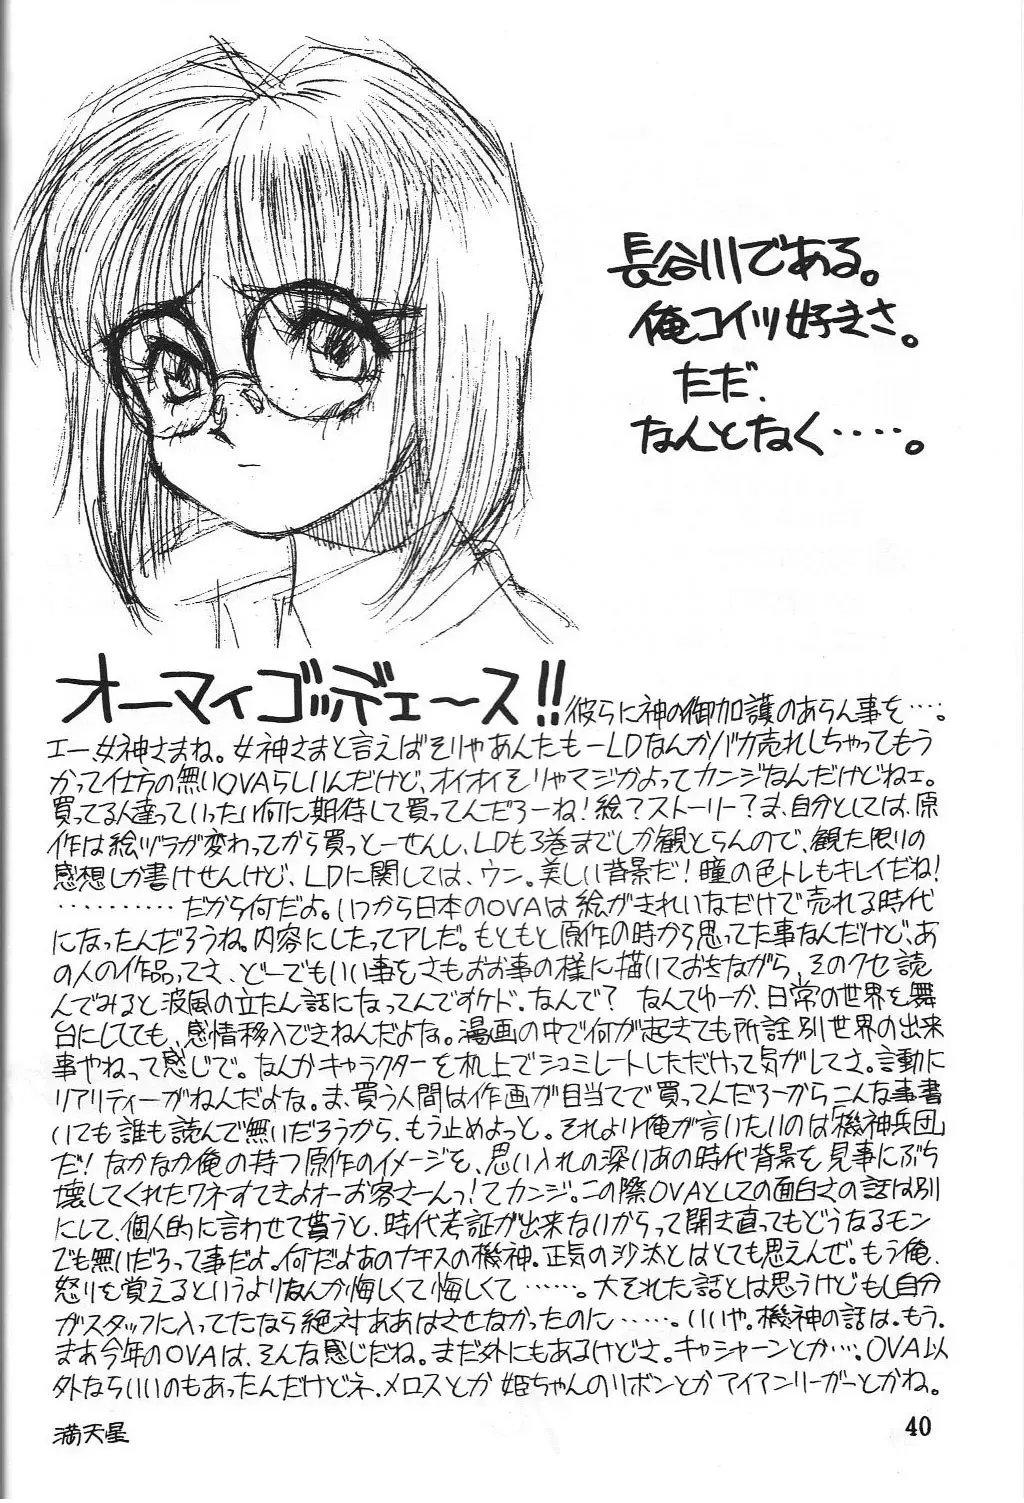 長谷川である。
俺コイツ好きさ。
ただ、
なんとなく‥‥。
オーマィゴッデェ〜ス!! 彼らに神の御加護のあらん事を‥‥。
エー、女神さまね。女神さまと言えばそりゃあんたもーLDなんかバカ売れしちゃってもう
かって仕方の無いOVAらしいんだけど、オイオイそりゃマジかよってカンジなんだけどねェ。
買ってる人達っていったい何に期待して買ってんだろーね!絵?ストーリー?ま、自分としては、原
作は絵ヅラが変わってから買っとーせんし、LDも3巻までしか観とらんので、観た限りの
感想しか書けせんけど、LDに関しては、ウン。美しい背景だ!瞳の色トレもキレイだね!
‥‥‥‥‥だから何だよ。いつから日本のOVAは絵がきれいなだけで売れる時代
になったんだろうね。内容にしたってアレだ。もともと原作の時から思ってた事なんだけど、あ
の人の作品ってさ、どーでもいい事をさもおお事の様に描いておきながら、そのクセ読
んでみると波風の立たん話になってんですケド。なんで? なんてゆーか、日常の世界を舞
台にしてても、感情移入できねんだよな。漫画の中で何が起きても所詮別世界の出来
事やねって感じで。なんかキャラクターを机上でシュミレートしただけって気がしてさ。言動に
リアリティーがねんだよな。ま、買う人間は作画が目当てで買ってんだろーからこんな事書
いても誰も読んで無いだろうから、もう止めよっと。それより俺が言いたいのは「機神兵団」
だ!なかなか俺の持つ原作のイメージを、思い入れの深いあの時代背景を見事にぶち
壊してくれたワネすてきよオーお客さーんっ!てカンジ。この際OVAとしての面白さの話は別
にして、個人的に言わせて貰うと、時代考証が出来ないからって開き直ってもどうなるモン
でも無いだろって事だよ。何だよあのナチスの機神。正気の沙汰とはとても思えんぜ。もう俺、
怒りを覚えるというよりなんか悔しくて悔しくて‥‥‥。大それた話とは思うけどもし自分
がスタッフに入ってたなら絶対ああはさせなかったのに‥‥‥。いいや。機神の話は。もう。
まあ今年のOVAは、そんな感じだね。まだ外にもあるけどさ。キャシャーンとか‥‥。OVA以
外ならいいのもあったんだけどネ、メロスとか姫ちゃんのリボンとかアイアンリーガーとかね。
満天星
40